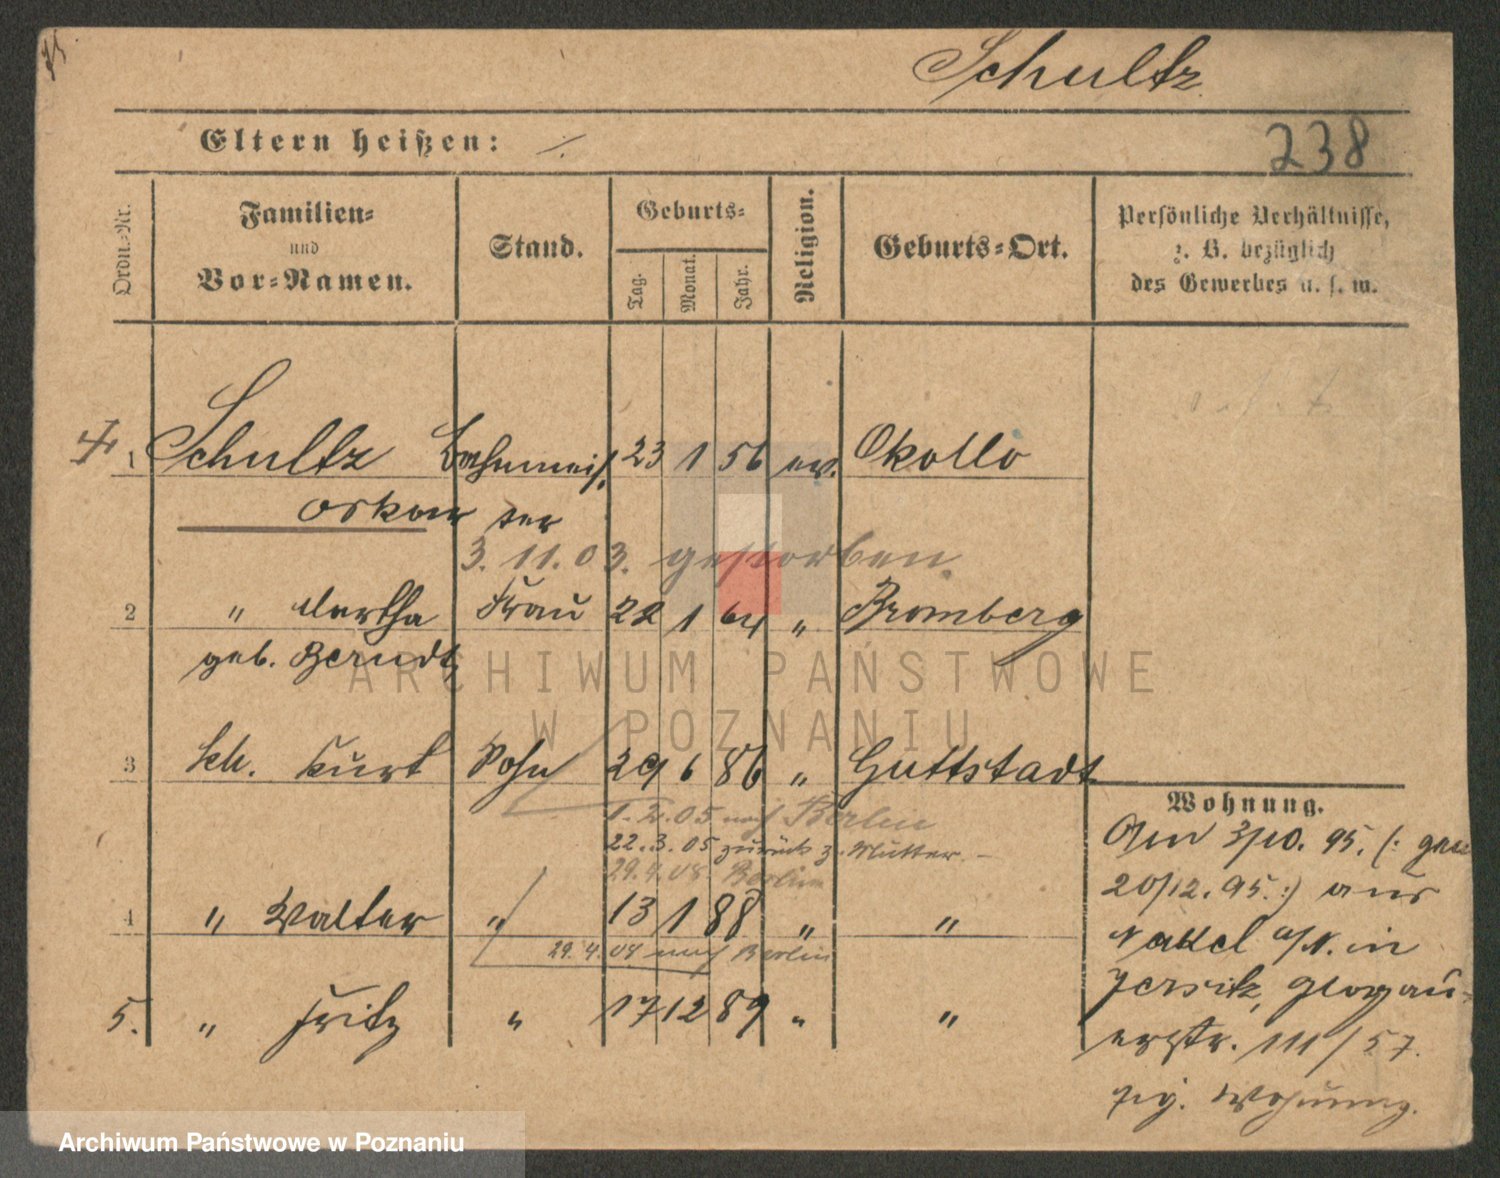 Schultz
Eltern heißen: ./.
238
Ordn.-Nr.
Familien-
und
Vor-Namen.
Stand.
Geburts-
Tag.
Monat.
Jahr.
Religion.
Geburts-Ort.
Persönliche Verhältnisse,
z. B. bezüglich
des Gewerbes u. s. w.
1 Schultz Bahnmeis. 23 1 56 ev. Okollo
Oskar ter
3. 11. 03. gestorben.
2 " Bertha Frau 22 1 64 " Bromberg
geb. Berndt
ARCHIWUM PAŃSTWOWE
W POZNANIU
3 Sch. Kurt Sohn 29 6 86 " Guttstadt
1. 2. 05 nach Berlin
22. 3. 05 zurück z. Mutter. –
29. 4. 08. Berlin
4 " Walter " 13 1 88 " "
29. 4. 08 nach Berlin
5. " Fritz " 17 12 89 " "
Wohnung.
Am 3/10. 95. (: gem
20/12. 95. :) aus
Nakel a/N. in
Jersitz, Glogau-
erstr. 111/57.
Wohnung.
Archiwum Państwowe w Poznaniu